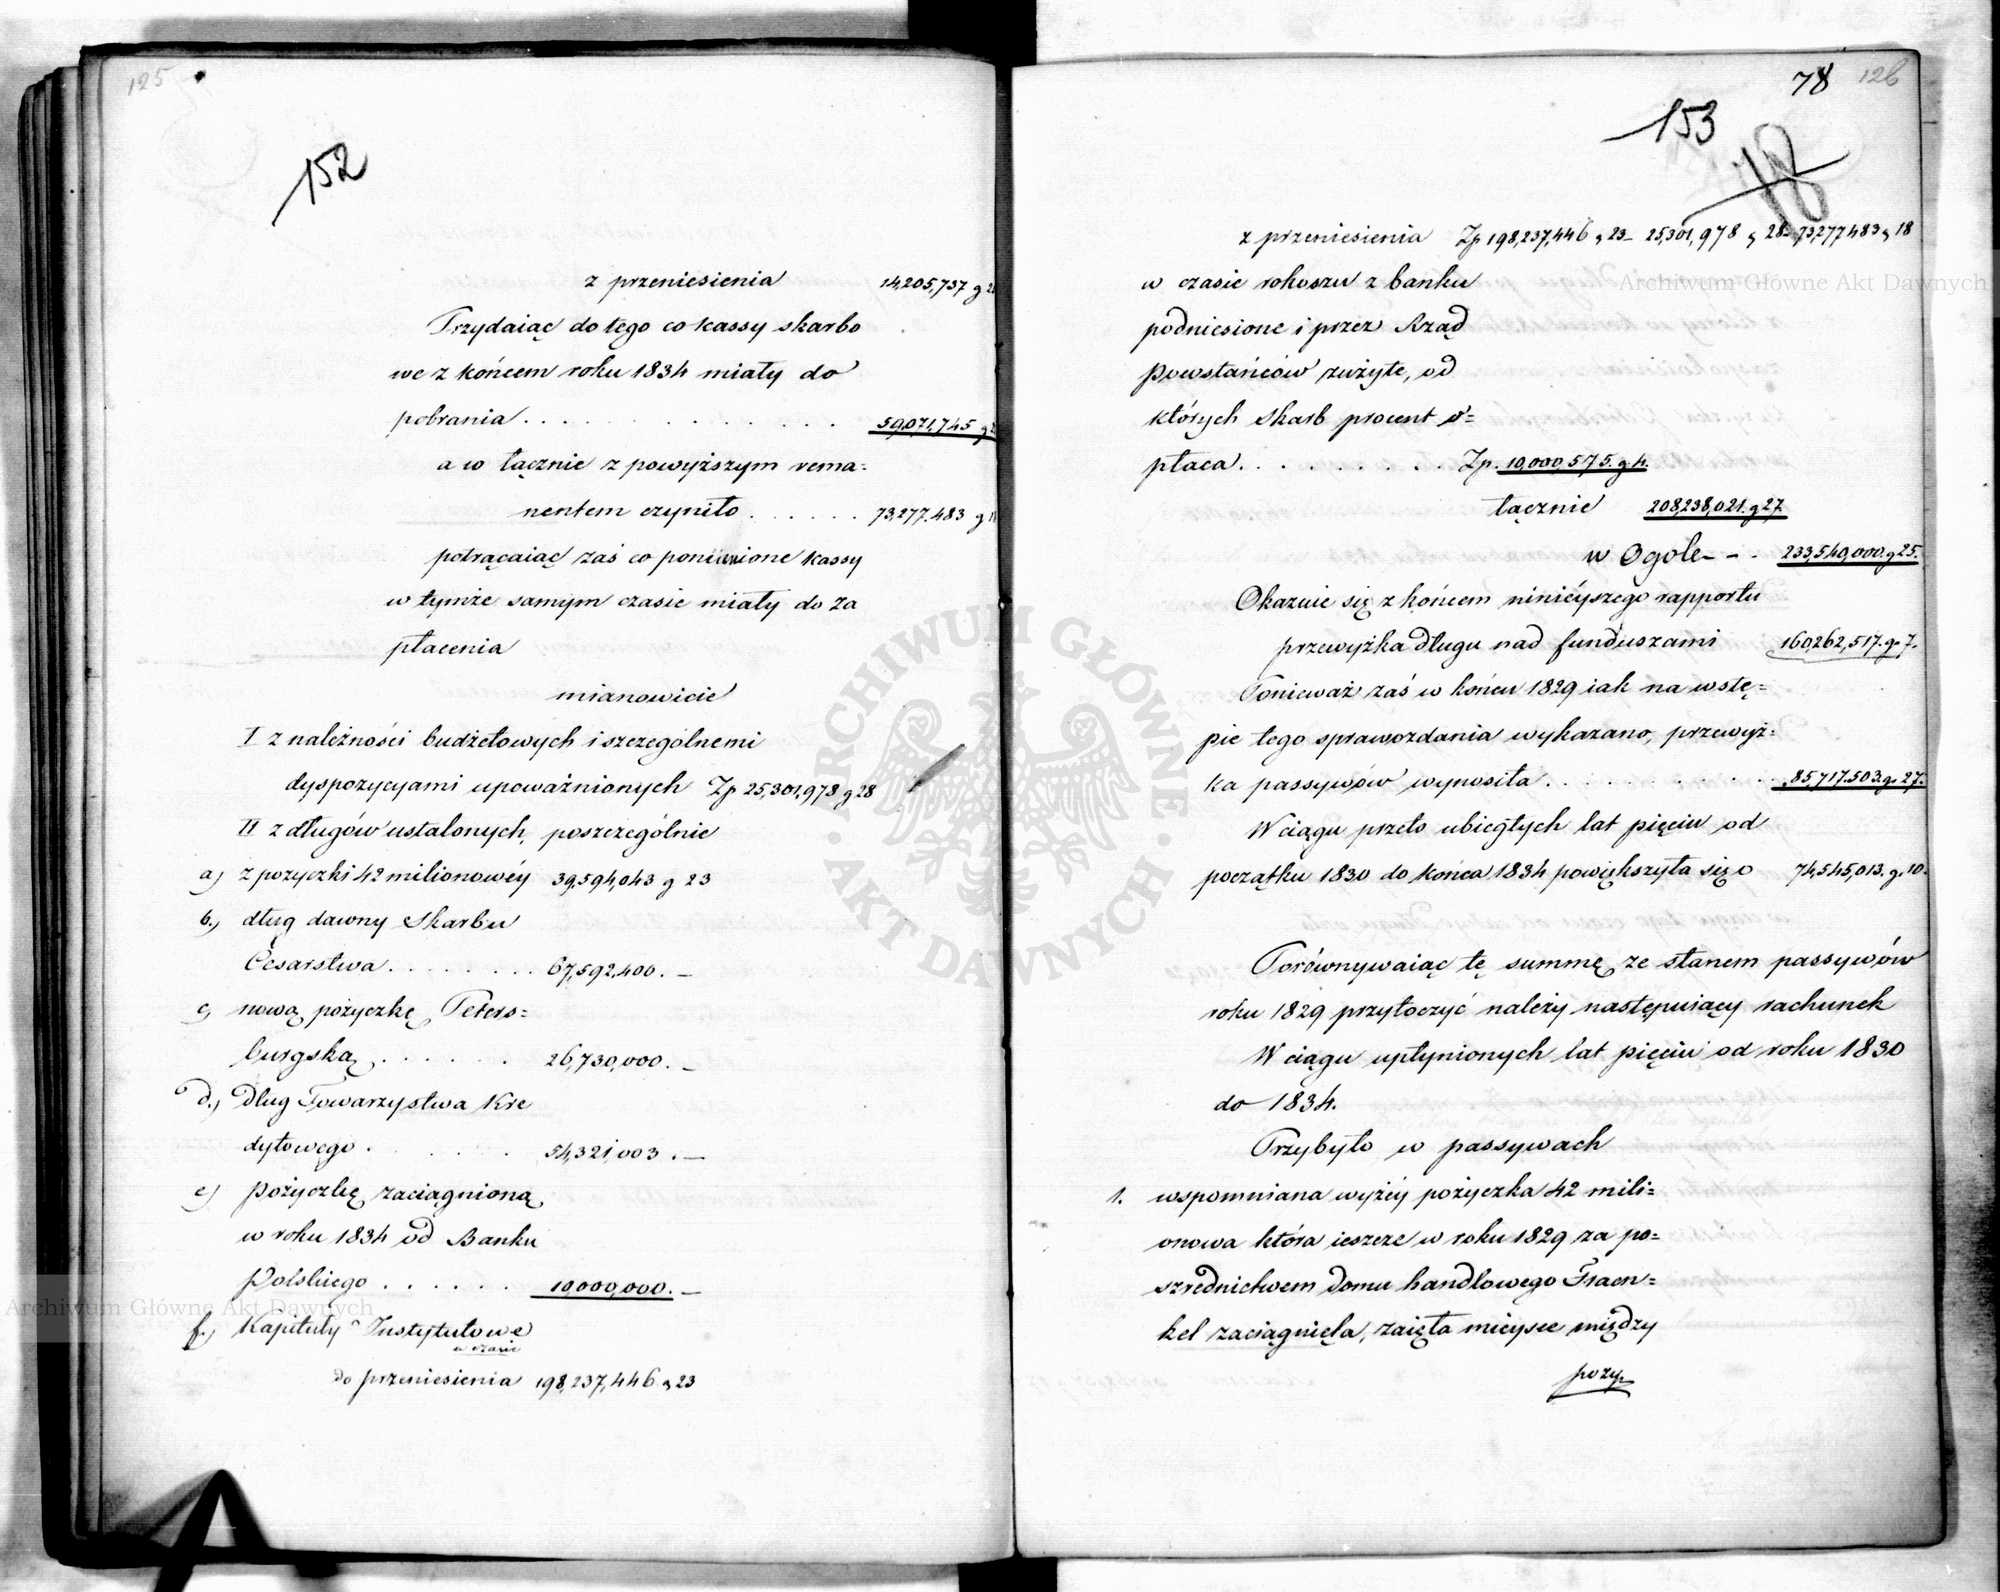 125
152
z przeniesienia 14,205,737 g
Przydaiąc do tego co kassy skarbo
we z końcem roku 1834 miały do
pobrania . . . . . . . . . . . . 59,071,745 g
a w łącznie z powyższym rema=
nentem czyniło . . . . . . 73,277.483 g
potrącaiąc zaś co pomienione kassy
w tymże samym czasie miały do za
płacenia
mianowicie
I z należności budżetowych i szczególnemi
dyspozycyami upoważnionych Zp 25,301,978 g 28
II z długów ustalonych, poszczególnie
a) z pozyczki 42 milionowéy 39,594,043 g 23
b.) dług dawny Skarbu
Cesarstwa . . . . . . . . 67,592,400. —
c) nową pożyczkę Peters=
burgską . . . . . . 26,730,000. —
d.) dług Towarzystwa Kre
dytowego . . . . . 54,321,003 . —
e) pożyczkę zaciągnioną
w roku 1834 od Banku
Polskiego . . . . . . 10,000,000. —
f.) Kapituły Instytutowe
w czasie
do przeniesienia 198,237,446 g 23
78 126
153
78
z przeniesienia Zp 198,237,446 g 23 – 25,301,978 g 28 – 73,277483 g 18
w czasie rokoszu z banku
podniesione i przez Rząd
Powstańców zużyte, od
których Skarb procent o=
płaca. . . . . . . . . Zp. 10,000,575. g 4.
łącznie 208,238,021. g 27.
w Ogole – – . 233,540,000. g 25.
Okazuie się z końcem ninieyszego rapportu
przewyżka długu nad funduszami 160,262,517. g. 7.
Ponieważ zaś w końcu 1829 iak na wstę=
pie tego sprawozdania wykazano, przewyż=
ka passywów wynosiła . . . . . . . . . . 85,717.503. g. 27.
W ciągu przeto ubiegłych lat pięciu od
początku 1830 do końca 1834 powiększyła się o 74,545,013. g. 10.
Porównywaiąc tę summę ze stanem passywów
roku 1829 przytoczyć należy następuiący rachunek
W ciągu upłynionych lat pięciu od roku 1830
do 1834.
Przybyło w passywach
1. wspomniana wyżéy pożyczka 42 mili=
onowa która ieszcze w roku 1829 za po=
szrednictwem domu handlowego Fraen=
kel zaciągnięta, zaięła mieysce między
pozy.
Archiwum Główne Akt Dawnych
Archiwum Główne Akt Dawnych
ARCHIWUM GŁÓWNE · AKT DAWNYCH ·